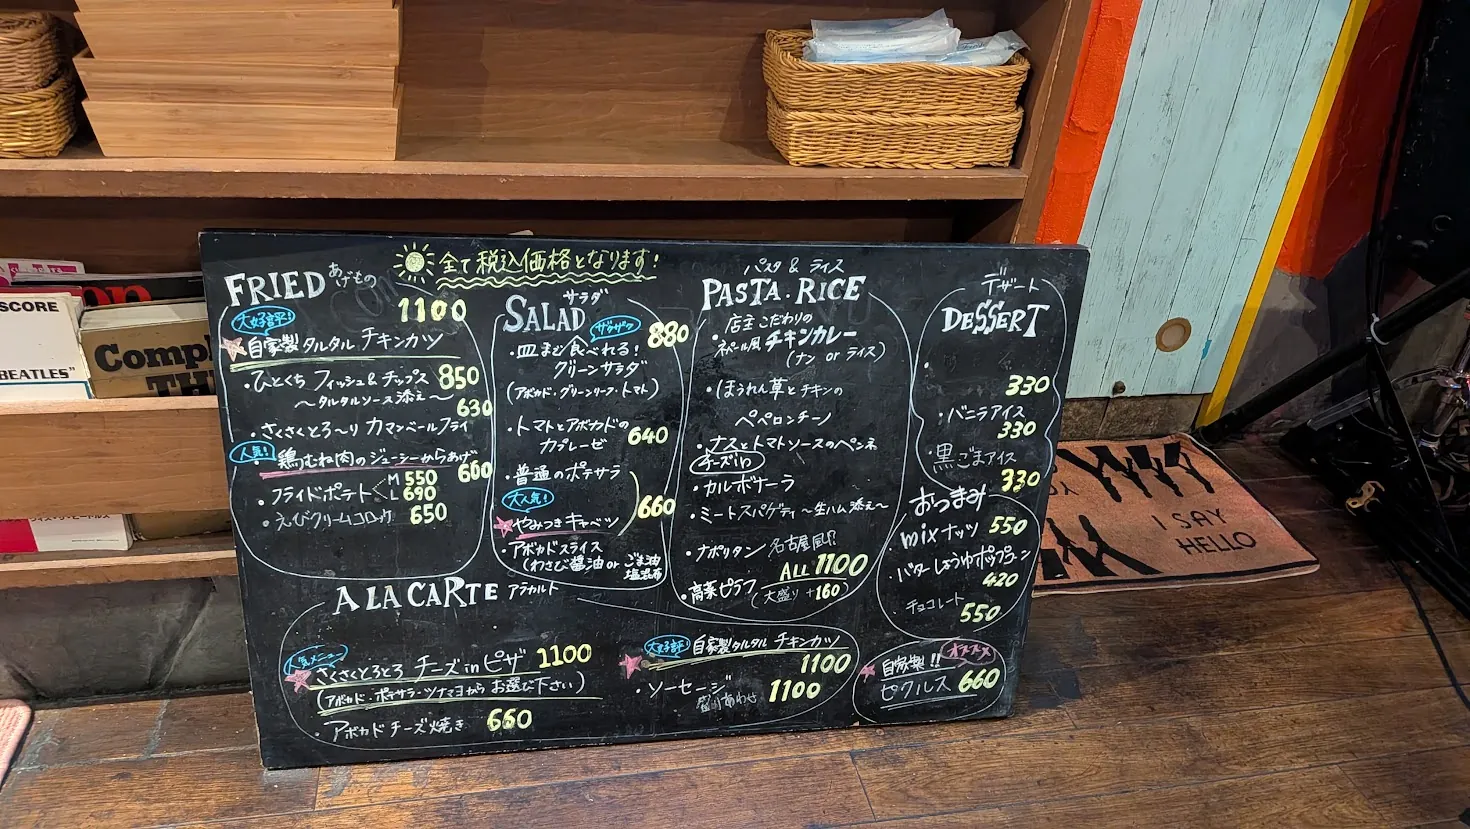 SCORE
BEATLES"
Compl
TH
I SAY
HELLO
全て税込価格となります!
FRIED あげもの
1100
大好評!
自家製タルタル チキンカツ
・ひとくち フィッシュ&チップス 850
〜タルタルソース添え〜
630
・さくさくとろ〜り カマンベールフライ
人気!
・鶏むね肉のジューシーからあげ 660
・フライドポテト M 550
L 690
・えびクリームコロッケ 650
SALAD サラダ
ザクザク
880
・皿まで食べれる!
グリーンサラダ
(アボカド・グリーンリーフ・トマト)
・トマトとアボカドの
カプレーゼ 640
・普通のポテサラ
大人気!
660
やみつきキャベツ
・アボカドスライス
(わさび醤油 or ごま油
塩昆布
パスタ & ライス
PASTA・RICE
店主こだわりの
・ネパール風 チキンカレー
(ナン or ライス)
・ほうれん草とチキンの
ペペロンチーノ
・ナスとトマトソースのペンネ
チーズin
・カルボナーラ
・ミートスパゲティ 〜生ハム添え〜
・ナポリタン 名古屋風!!
ALL 1100
・高菜ピラフ (大盛り +160)
デザート
DESSERT
330
・バニラアイス
330
・黒ごまアイス
330
おつまみ
・mixナッツ 550
・バターしょうゆポップコーン
420
・チョコレート
550
A LA CARTE アラカルト
人気メニュー
さくさくとろとろ チーズinピザ 1100
(アボカド・ポテサラ・ツナマヨから お選び下さい)
・アボカドチーズ焼き 660
大好評!
自家製タルタル チキンカツ
1100
・ソーセージ
盛りあわせ 1100
自家製!! オススメ
ピクルス 660